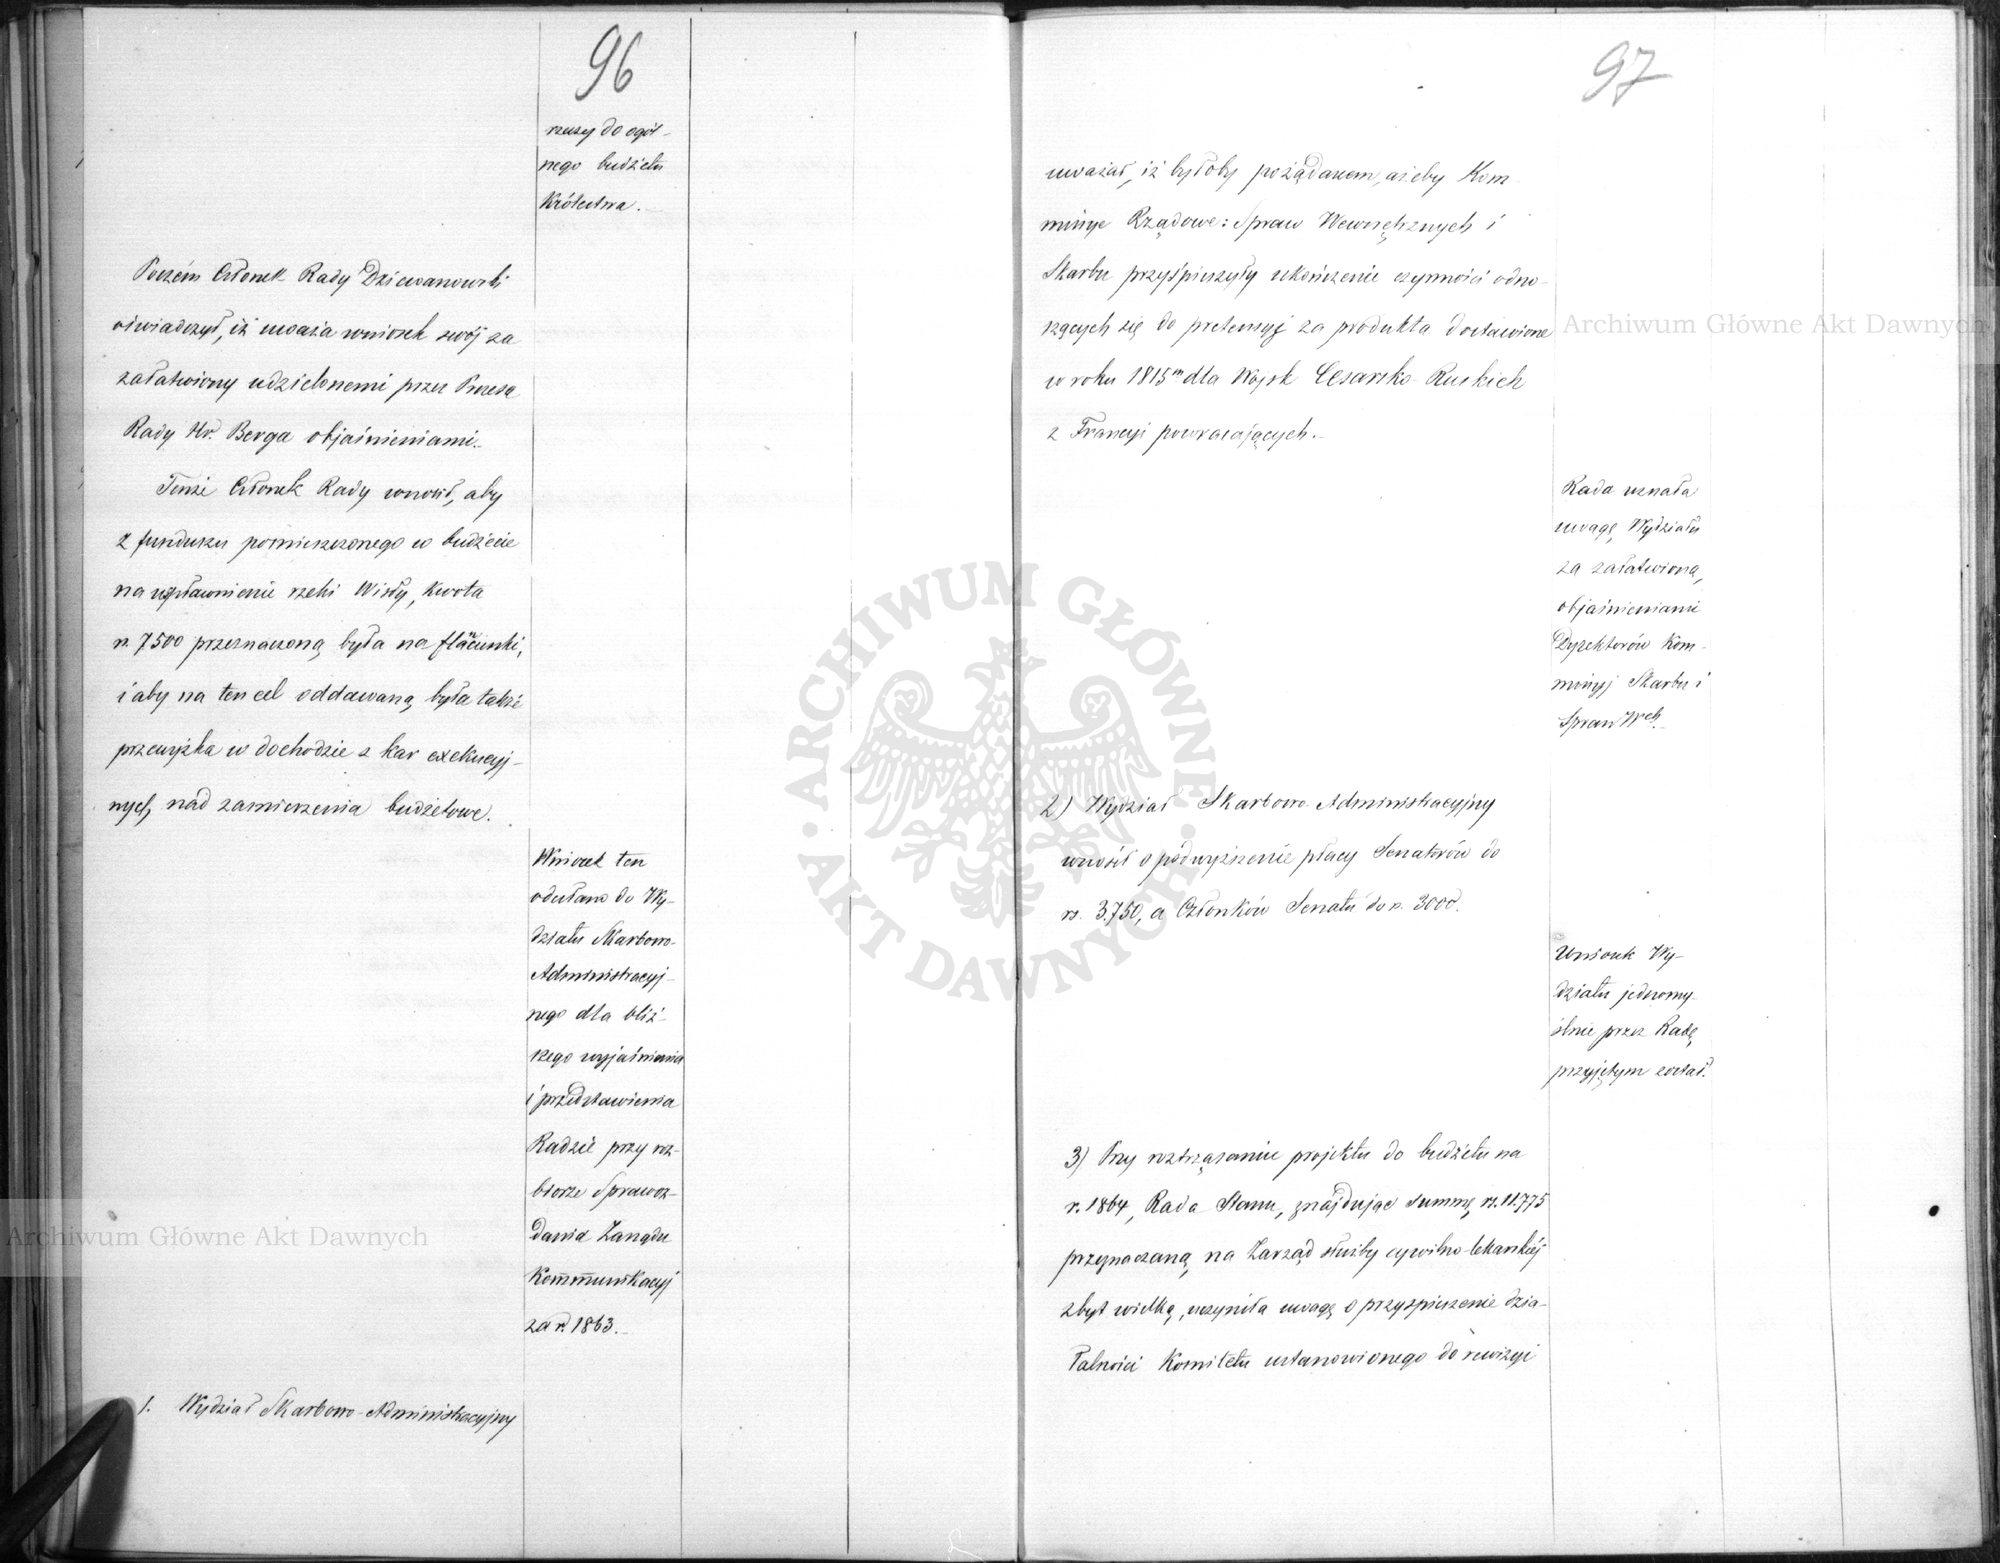 96
rzeszy do ogól-
nego budżetu
Królestwa.
Poczém Członek Rady Dziewanowski
oświadczył, iż uważa wniosek swój za
załatwiony udzielonemi przez Prezesa
Rady Hr. Berga objaśnieniami.
Tenże Członek Rady wnosił, aby
z funduszu pomieszczonego w budżecie
na uspławnienie rzeki Wisły, kwota
rs. 7500 przeznaczoną była na
i aby na ten cel oddawaną była także
przewyżka w dochodzie z kar exekucyj-
nych nad zamierzenia budżetowe.
Wniosek ten
odesłano do Wy-
działu Skarbowo-
Administracyj-
nego dla bliż-
szego wyjaśnienia
i przedstawienia
Radzie przy roz-
biorze Sprawoz-
dania Zarządu
Kommunikacyj
za r. 1863.
1. Wydział Skarbowo-Administracyjny
97
uważał, iż byłoby pożądanem, ażeby Kom-
missye Rządowe: Spraw Wewnętrznych i
Skarbu przyśpieszyły ukończenie czynności odno-
szących się do pretensyj za produkta dostawione
w roku 1815m dla Wojsk Cesarsko-Ruskich
z Francyi powracających.
Rada uznała
uwagę Wydziału
za załatwioną
objaśnieniami
Dyrektorów Kom-
missyj Skarbu i
Spraw Wch
2) Wydział Skarbowo-Administracyjny
wnosił o podwyższenie płacy Senatorów do
rs. 3.750, a Członków Senatu do rs. 3000.
Wniosek Wy-
działu jednomy-
ślnie przez Radę
przyjętym został.
3) Przy roztrząsaniu projektu do budżetu na
r. 1864, Rada Stanu, znajdując summę rs. 11.775
przeznaczoną na Zarząd służby cywilno-lekarskiéj
zbyt wielką, uczyniła uwagę o przyspieszenie dzia-
łalności Komitetu ustanowionego do rewizyi
Archiwum Główne Akt Dawnych
Archiwum Główne Akt Dawnych
ARCHIWUM GŁÓWNE AKT DAWNYCH